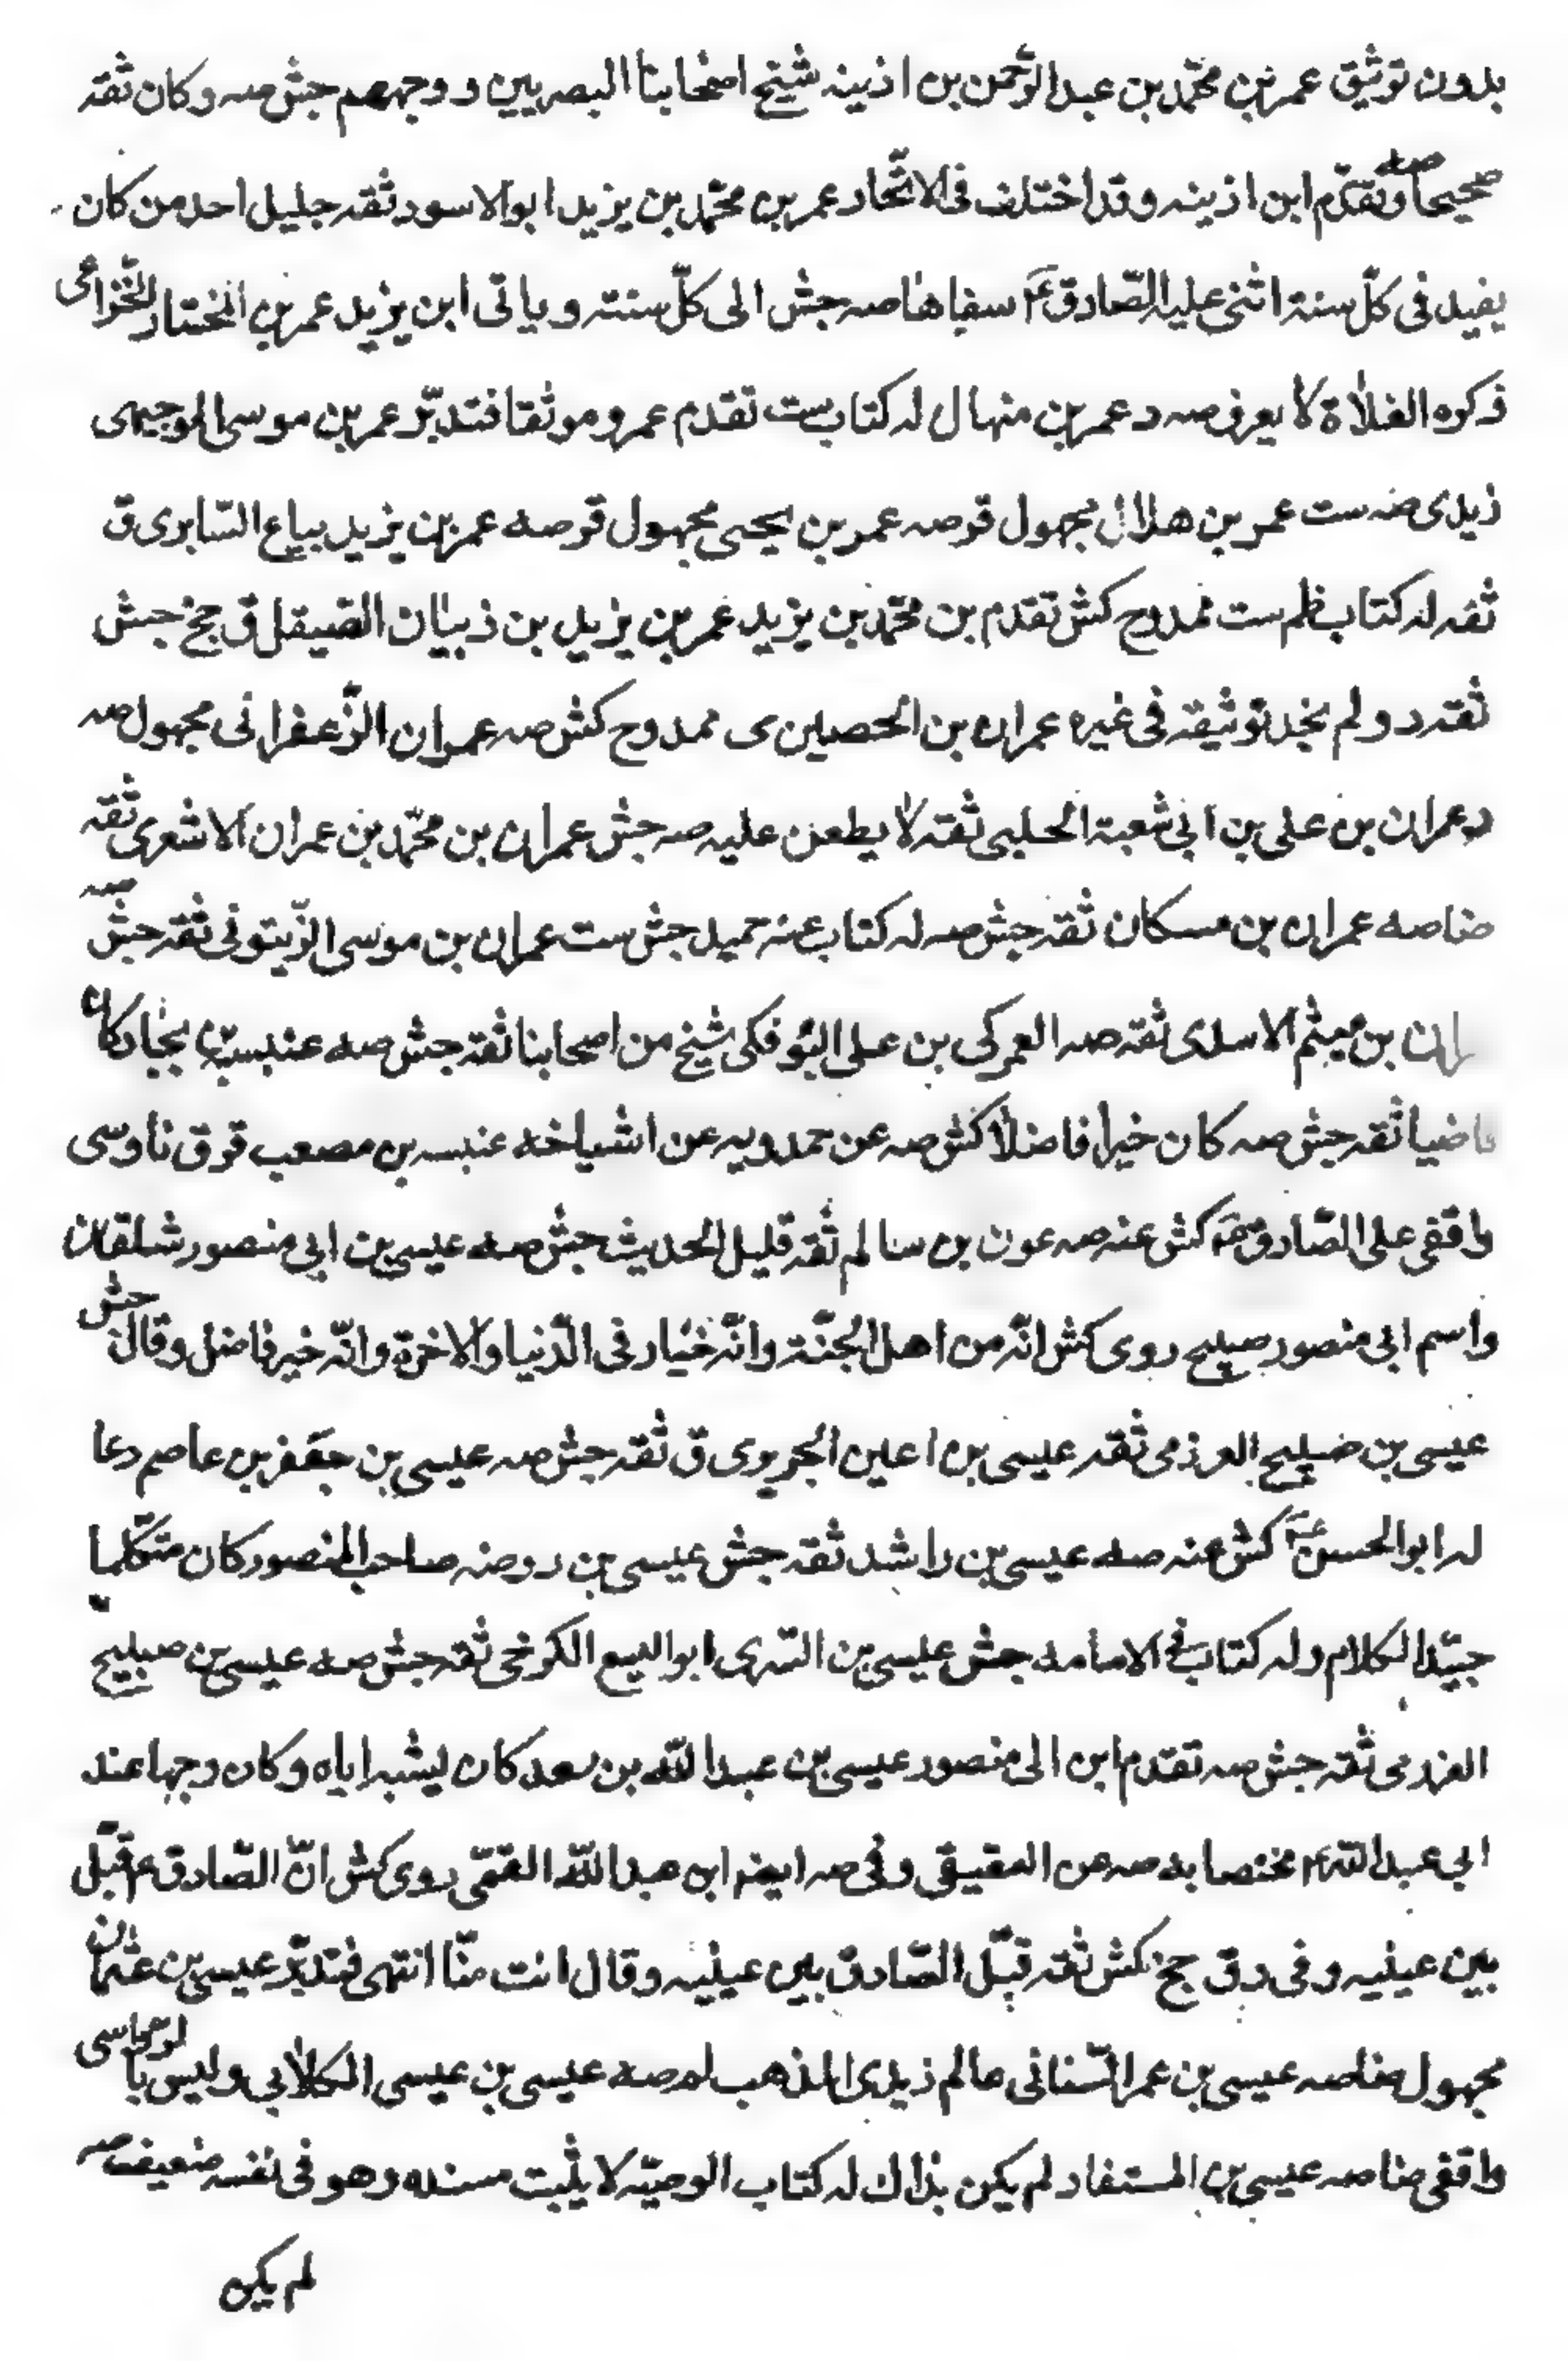 بدون توثيق عمر بن محمّد بن عبد الرّحمن بن اذينه شيخ اصحابنا البصريين ووجههم جش صه وكان ثقه
صحيحا صه وتقدّم ابن اذينه وقد اختلف فى الاتّحاد عمر بن محمّد بن يزيد ابو الاسود ثقه جليل احد من كان
يفيد فى كلّ سنة اثنى عليه الصّادق ع سفاها صه جش الى كلّ سنته وياتى ابن يزيد عمر بن المختار الخزاعى
ذكره الغلاة لا يعرف صه د عمر بن منهال له كتاب ست تقدم عمرو موثقا فتدبّر عمر بن موسى الوجيهى
زيدى صه ست عمر بن هلال مجهول قر صه عمر بن يحيى مجهول قر صه عمر بن يزيد بياع السّابرى ق
ثقه له كتاب ظم ست ممدوح كش تقدم بن محمّد بن يزيد عمر بن يزيد بن ذبيان الصّيقل ق جخ جش
ثقه د ولم نجد توثيقه فى غيره عمران بن الحصين ى ممدوح كش صه عمران الزّعفرانى مجهول صه
د عمران بن على بن ابى شعبة الحلبى ثقه لا يطعن عليه صه جش عمران بن محمّد بن عمران الاشعرى ثقه
ضا صه عمران بن مسكان ثقه جش صه له كتاب عنه حميد جش ست عمران بن موسى الزّيتونى ثقه جش صه
ران بن ميثم الاسدى ثقه صه العمركى بن على البوفكى شيخ من اصحابنا ثقه جش صه عنبسة بن بجاد كان
قاضيا ثقه جش صه كان خيرا فاضلا كش صه عن حمدويه عن اشياخه عنبسه بن مصعب قر ق ناوسى
واقفى على الصّادق ع كش عنه صه عون بن سالم ثقه قليل الحديث جش صه عيسى بن ابى منصور شلقان
واسم ابى منصور صبيح روى كش انّه من اهل الجنّة وانّه خيار فى الدّنيا والاخرة وانّه خير فاضل وقال جش
عيسى بن صبيح العرزمى ثقه عيسى بن اعين الجريرى ق ثقه جش صه عيسى بن جعفر بن عاصم دعا
له ابو الحسن ع كش عنه صه عيسى بن راشد ثقه جش عيسى بن روضه صاحب المنصور كان متكلّما
جيّد الكلام وله كتاب فى الامامه جش عيسى بن السّرى ابو اليسع الكرخى ثقه جش صه عيسى بن صبيح
العزرمى ثقه جش صه تقدم ابن الى منصور عيسى بن عبد الله بن سعد كان يشبه اباه وكان وجها عند
ابى عبد الله ع مختصا به صه عن العقيقى وفى صه ايضا ابن عبد الله القمّى روى كش انّ الصّادق ع قبّل
بين عينيه وفى د ق جخ كش ثقه قبّل الصّادق بين عينيه وقال انت منّا انتهى فتدبّر عيسى بن عثمان
مجهول ضا صه عيسى بن عمر السّنانى عالم زيدى المذهب لم صه عيسى بن عيسى الكلابى وليس بالرواسى
واقفى ضا صه عيسى بن المستفاد لم يكن بذاك له كتاب الوصيّه لا يثبت مسنده وهو فى نفسه ضعيف صه
لم يكن